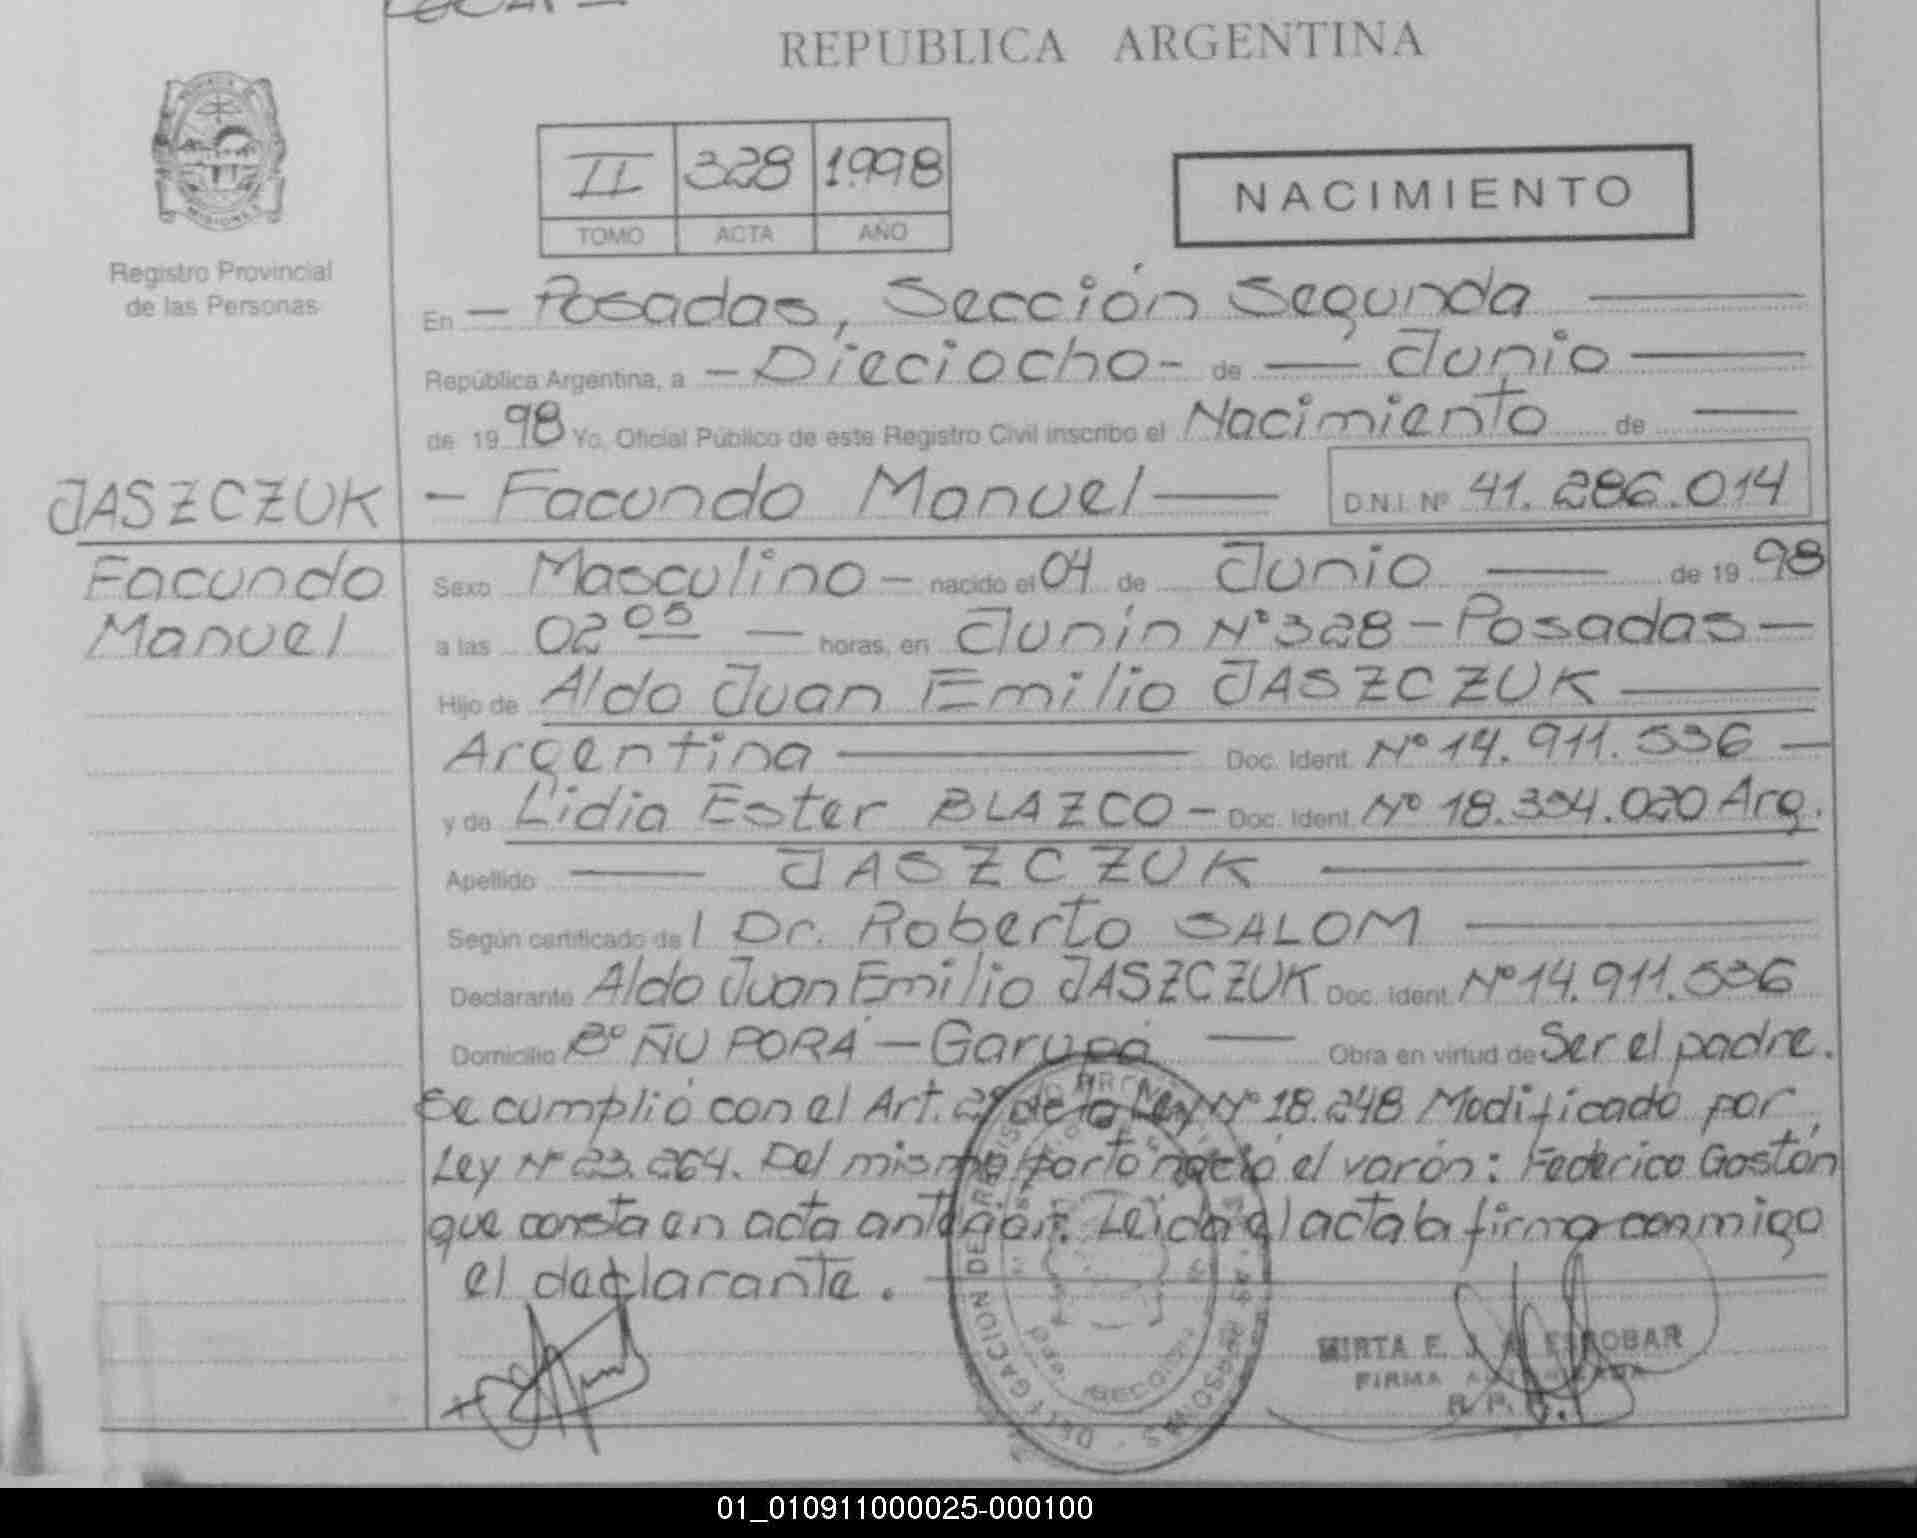 REPUBLICA ARGENTINA
MISIONES
Registro Provincial
de las Personas
II 328 1998
TOMO ACTA AÑO
NACIMIENTO
En — Posadas, Sección Segunda
República Argentina, a — Dieciocho - de — Junio
de 19 98 Yo, Oficial Público de este Registro Civil inscribo el Nacimiento de
JASZCZUK
Facundo
Manuel
— Facundo Manuel — D.N.I. Nº 41.286.014
Sexo Masculino — nacido el 04 de Junio — de 19 98
a las 02 05 — horas, en Junín Nº 328 - Posadas —
Hijo de Aldo Juan Emilio JASZCZUK
Argentina — Doc. Ident. Nº 14.911.536 —
y de Lidia Ester BLAZCO - Doc. Ident. Nº 18.394.020 Arg.
Apellido — JASZCZUK
Según certificado de l Dr. Roberto SALOM
Declarante Aldo Juan Emilio JASZCZUK Doc. Ident. Nº 14.911.536
Domicilio Bº ÑU PORÁ - Garupá — Obra en virtud de Ser el padre.
Se cumplió con el Art. de la Ley Nº 18.248 Modificado por
Ley Nº 23.264. Del mismo parto nació el varón: Federico Gastón
que consta en acta anterior. Leída el acta la firma conmigo
el declarante.
MIRTA E. J. ESCOBAR
FIRMA AUTORIZADA
01_010911000025-000100